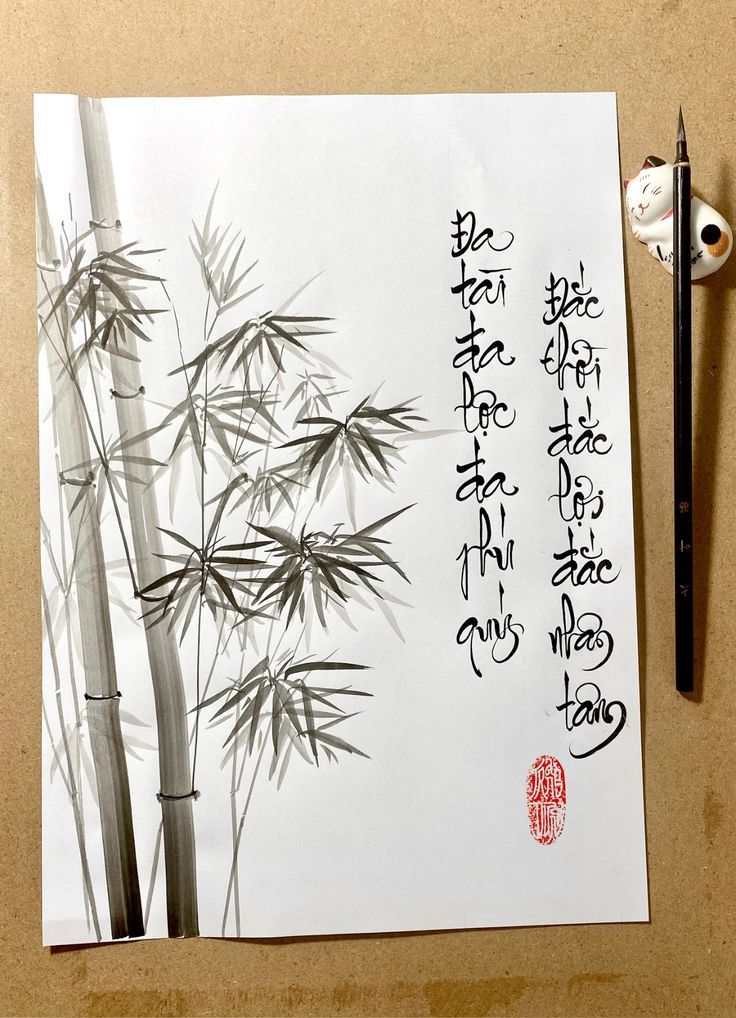 Đa tài đa lộc đa phú quý
Đắc thời đắc lợi đắc nhân tâm